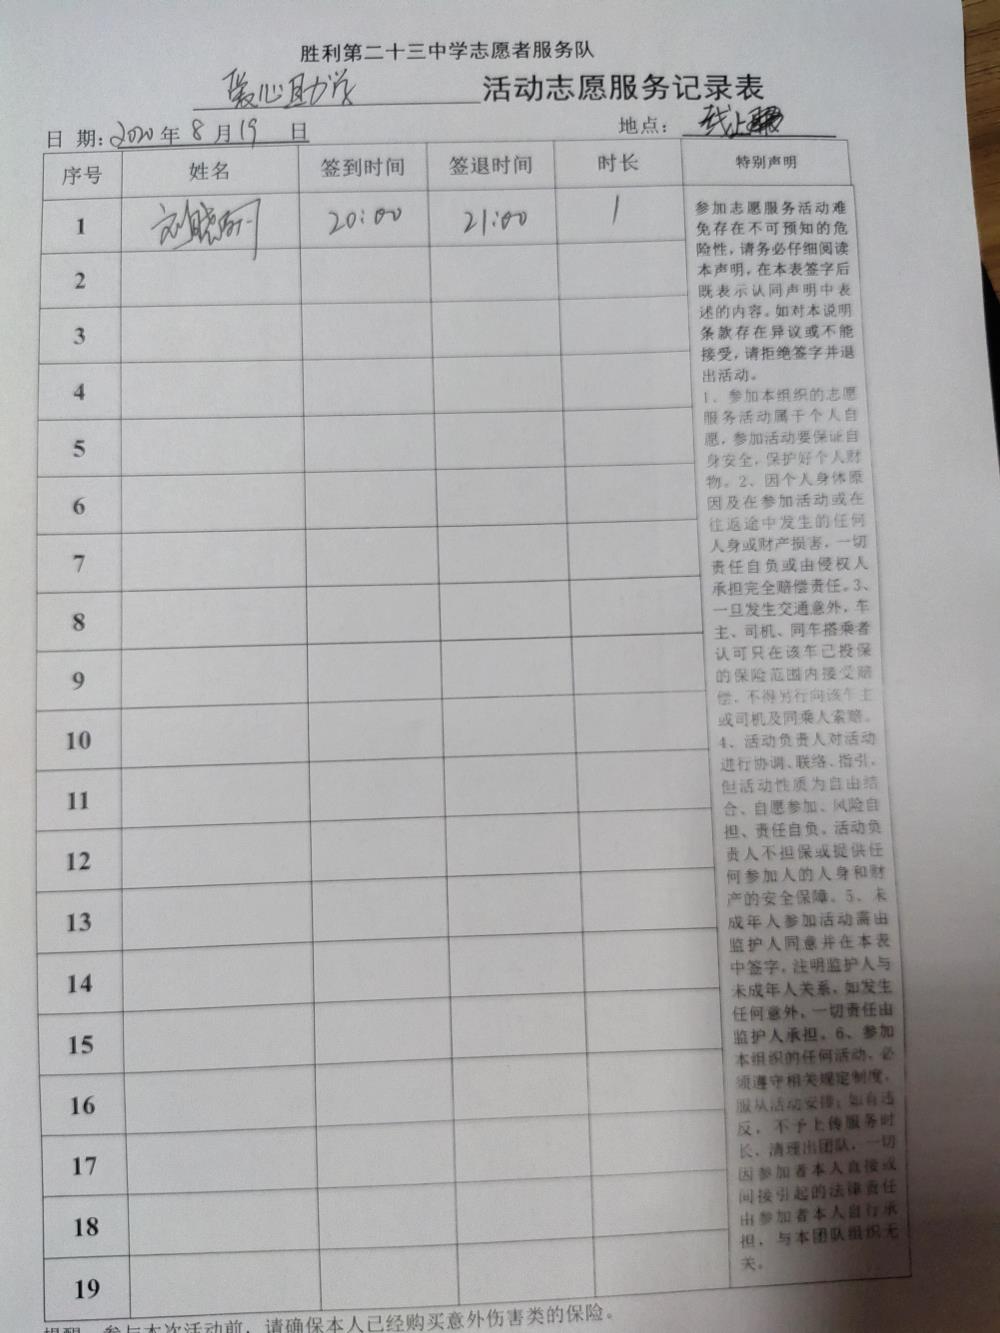 胜利第二十三中学志愿者服务队
爱心助学 活动志愿服务记录表
日 期：2020年8月19日 地点：线上
序号 姓名 签到时间 签退时间 时长 特别声明
1 20:00 21:00 1
2
3
4
5
6
7
8
9
10
11
12
13
14
15
16
17
18
19
参加志愿服务活动难
免存在不可预知的危
险性，请务必仔细阅读
本声明，在本表签字后
既表示认同声明中表
述的内容。如对本说明
条款存在异议或不能
接受，请拒绝签字并退
出活动。
1、参加本组织的志愿
服务活动属于个人自
愿，参加活动要保证自
身安全，保护好个人财
物。2、因个人身体原
因及在参加活动或在
往返途中发生的任何
人身或财产损害，一切
责任自负或由侵权人
承担完全赔偿责任。3、
一旦发生交通意外，车
主、司机、同车搭乘者
认可只在该车已投保
的保险范围内接受赔
偿，不得另行向该车主
或司机及同乘人索赔。
4、活动负责人对活动
进行协调、联络、指引，
但活动性质为自由结
合、自愿参加、风险自
担、责任自负。活动负
责人不担保或提供任
何参加人的人身和财
产的安全保障。5、未
成年人参加活动需由
监护人同意并在本表
中签字，注明监护人与
未成年人关系，如发生
任何意外，一切责任由
监护人承担。6、参加
本组织的任何活动，必
须遵守相关规定制度，
服从活动安排；如有违
反，不予上传服务时
长，清理出团队，一切
因参加者本人直接或
间接引起的法律责任
由参加者本人自行承
担，与本团队组织无
关。
提醒：参与本次活动前，请确保本人已经购买意外伤害类的保险。